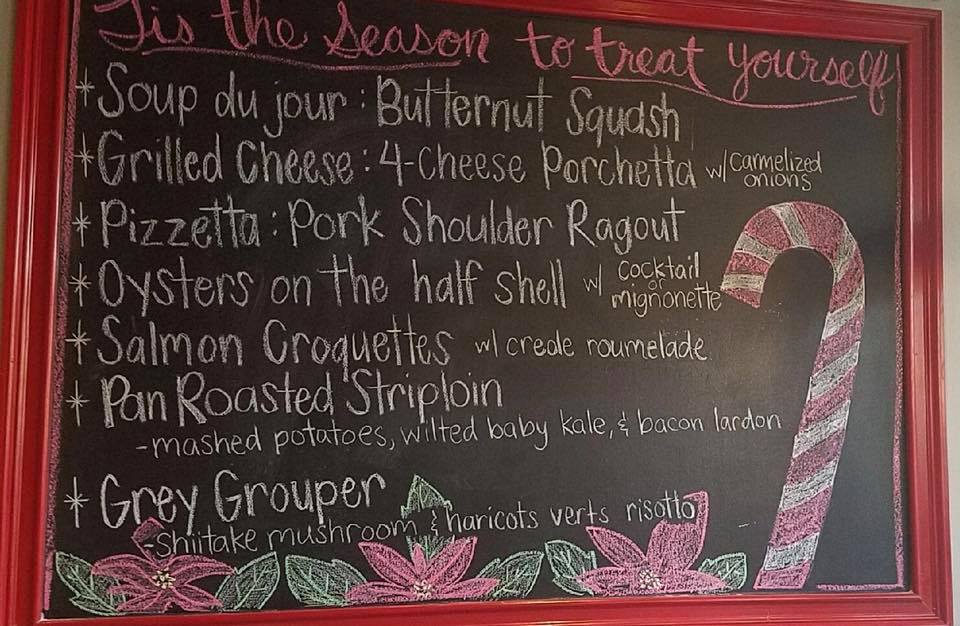 Tis the Season to treat yourself
* Soup du jour : Butternut Squash
* Grilled Cheese : 4-Cheese Porchetta w/ Carmelized onions
* Pizzetta : Pork Shoulder Ragout
* Oysters on the half shell w/ Cocktail or mignonette
* Salmon Croquettes w/ creole roumelade
* Pan Roasted Striploin
-mashed potatoes, wilted baby kale, & bacon lardon
* Grey Grouper
-Shiitake mushroom & haricots verts risotto